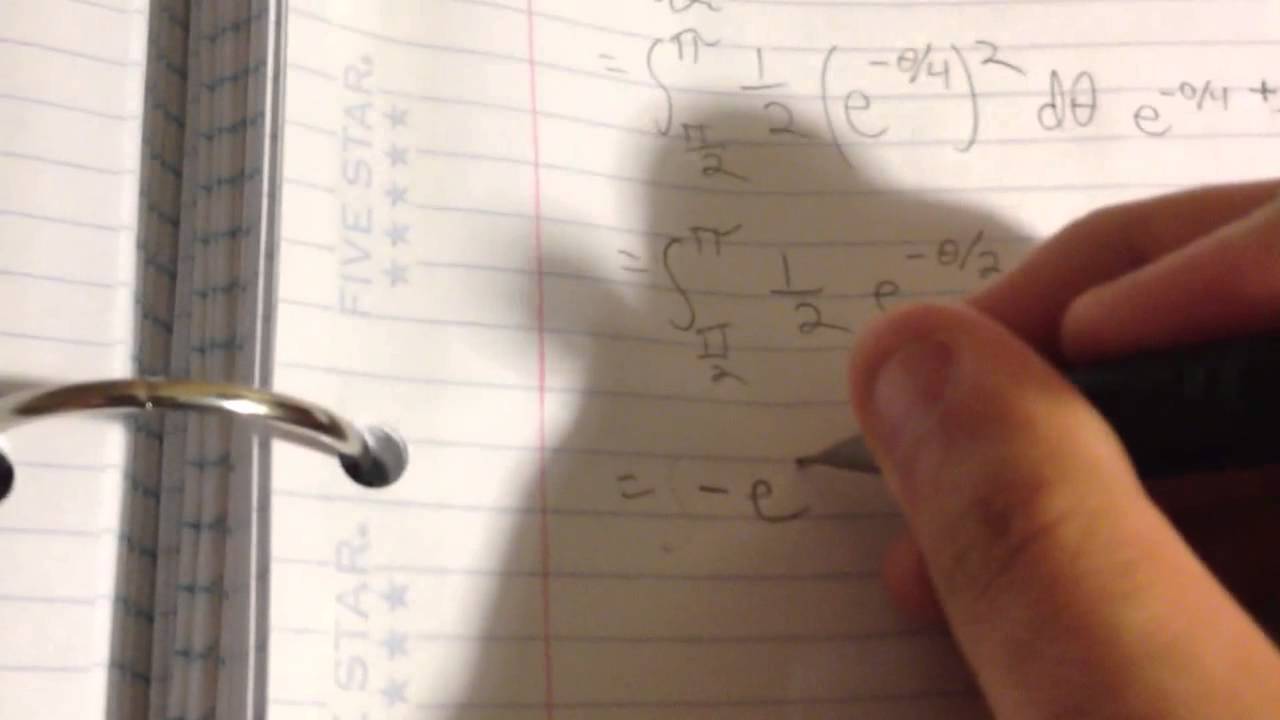 = ∫_{π/2}^{π} 1/2 (e^{-θ/4})^2 dθ e^{-θ/4 +
= ∫_{π/2}^{π} 1/2 e^{-θ/2
= -e
FIVE STAR.
STAR.